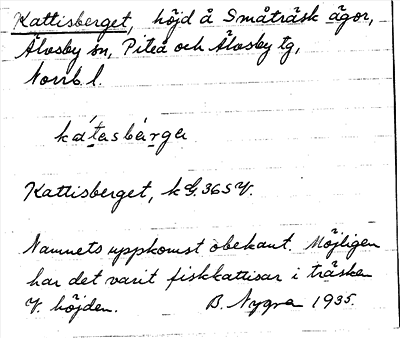 Kattisberget, höjd å Småträsk ägor,
Älvsby sn, Piteå och Älvsby tg,
Norrb. l.
kátasbárga
Kattisberget, k G. 365 V.
Namnets uppkomst obekant. Möjligen
har det varit fiskkattisar i träsken
V. höjden. B. Nygren 1935.